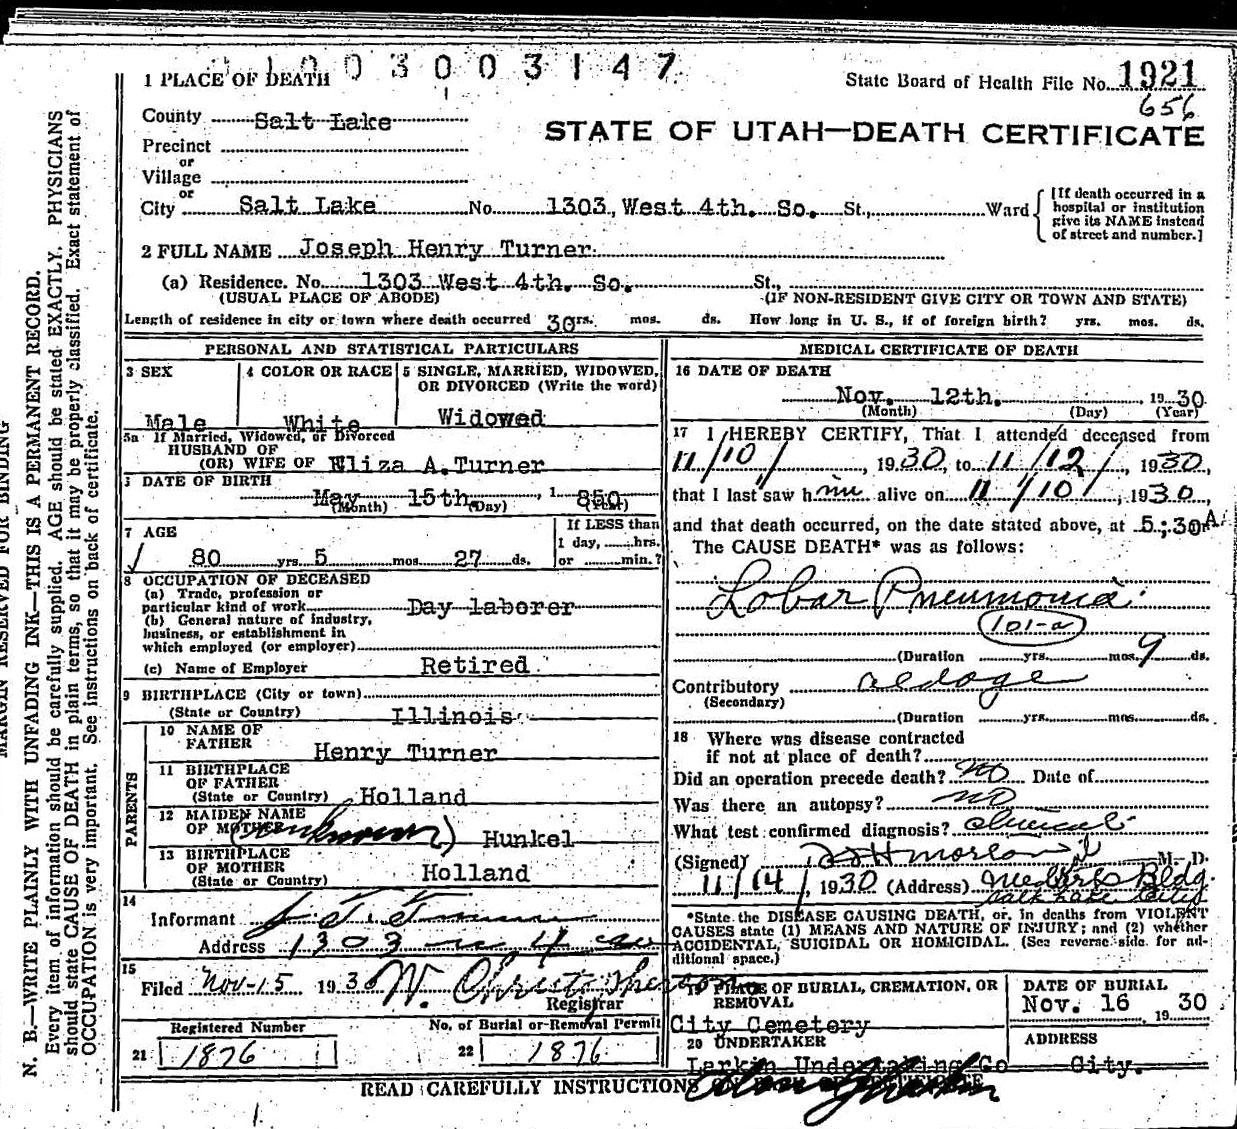 1 PLACE OF DEATH 1 0 0 3 0 0 3 1 4 7
State Board of Health File No. 1921
656
County Salt Lake
STATE OF UTAH—DEATH CERTIFICATE
Precinct
or
Village
or
City Salt Lake No. 1303, West 4th. So. St., Ward
[If death occurred in a hospital or institution give its NAME instead of street and number.]
2 FULL NAME Joseph Henry Turner.
(a) Residence. No. 1303 West 4th. So. St.,
(USUAL PLACE OF ABODE) (IF NON-RESIDENT GIVE CITY OR TOWN AND STATE)
Length of residence in city or town where death occurred 30rs. mos. ds. How long in U. S., if of foreign birth? yrs. mos. ds.
PERSONAL AND STATISTICAL PARTICULARS
3 SEX
Male
4 COLOR OR RACE
White
5 SINGLE, MARRIED, WIDOWED,
OR DIVORCED (Write the word)
Widowed
5a If Married, Widowed, or Divorced
HUSBAND OF
(OR) WIFE OF Eliza A.Turner
DATE OF BIRTH
May 15th, 1 850,
(Month) (Day) (Year)
7 AGE
80 yrs. 5 mos. 27 ds.
If LESS than
1 day, hrs.
or min.?
8 OCCUPATION OF DECEASED
(a) Trade, profession or
particular kind of work Day laborer
(b) General nature of industry,
business, or establishment in
which employed (or employer)
(c) Name of Employer Retired.
9 BIRTHPLACE (City or town)
(State or Country) Illinois
PARENTS
10 NAME OF
FATHER Henry Turner
11 BIRTHPLACE
OF FATHER
(State or Country) Holland
12 MAIDEN NAME
OF MOTHER (unknown) Hunkel
13 BIRTHPLACE
OF MOTHER
(State or Country) Holland
14
Informant
Address 1303 w 4 so
15
Filed Nov-15 1930 W. Christopherson
Registrar
Registered Number
21 1876
No. of Burial or Removal Permit
22 1876
MEDICAL CERTIFICATE OF DEATH
16 DATE OF DEATH
Nov. 12th. 19 30
(Month) (Day) (Year)
17 I HEREBY CERTIFY, That I attended deceased from
11/10/, 1930, to 11/12/, 1930,
that I last saw him alive on 11/10/, 1930,
and that death occurred, on the date stated above, at 5;30A.
The CAUSE DEATH* was as follows:
Lobar Pneumonia
101-a
(Duration yrs. mos. 9 ds.
Contributory old age
(Secondary)
(Duration yrs. mos. ds.
18 Where was disease contracted
if not at place of death?
Did an operation precede death? No Date of
Was there an autopsy? no
What test confirmed diagnosis? Clinical
(Signed) M. D.
11/14/, 1930 (Address) Bldg.
Salt Lake City
*State the DISEASE CAUSING DEATH, or, in deaths from VIOLENT
CAUSES state (1) MEANS AND NATURE OF INJURY; and (2) whether
ACCIDENTAL, SUICIDAL OR HOMICIDAL. (See reverse side for ad-
ditional space.)
19 PLACE OF BURIAL, CREMATION, OR
REMOVAL
City Cemetery
DATE OF BURIAL
Nov. 16, 19 30
20 UNDERTAKER
Larkin Undertaking Co
ADDRESS
City.
READ CAREFULLY INSTRUCTIONS
MARGIN RESERVED FOR BINDING
N. B.—WRITE PLAINLY WITH UNFADING INK—THIS IS A PERMANENT RECORD.
Every item of information should be carefully supplied. AGE should be stated EXACTLY. PHYSICIANS
should state CAUSE OF DEATH in plain terms, so that it may be properly classified. Exact statement of
OCCUPATION is very important. See instructions on back of certificate.